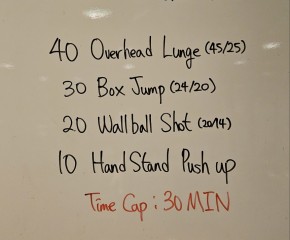 40 Overhead Lunge (45/25)
30 Box Jump (24/20)
20 Wallball Shot (20/14)
10 HandStand Push up
Time Cap : 30 MIN